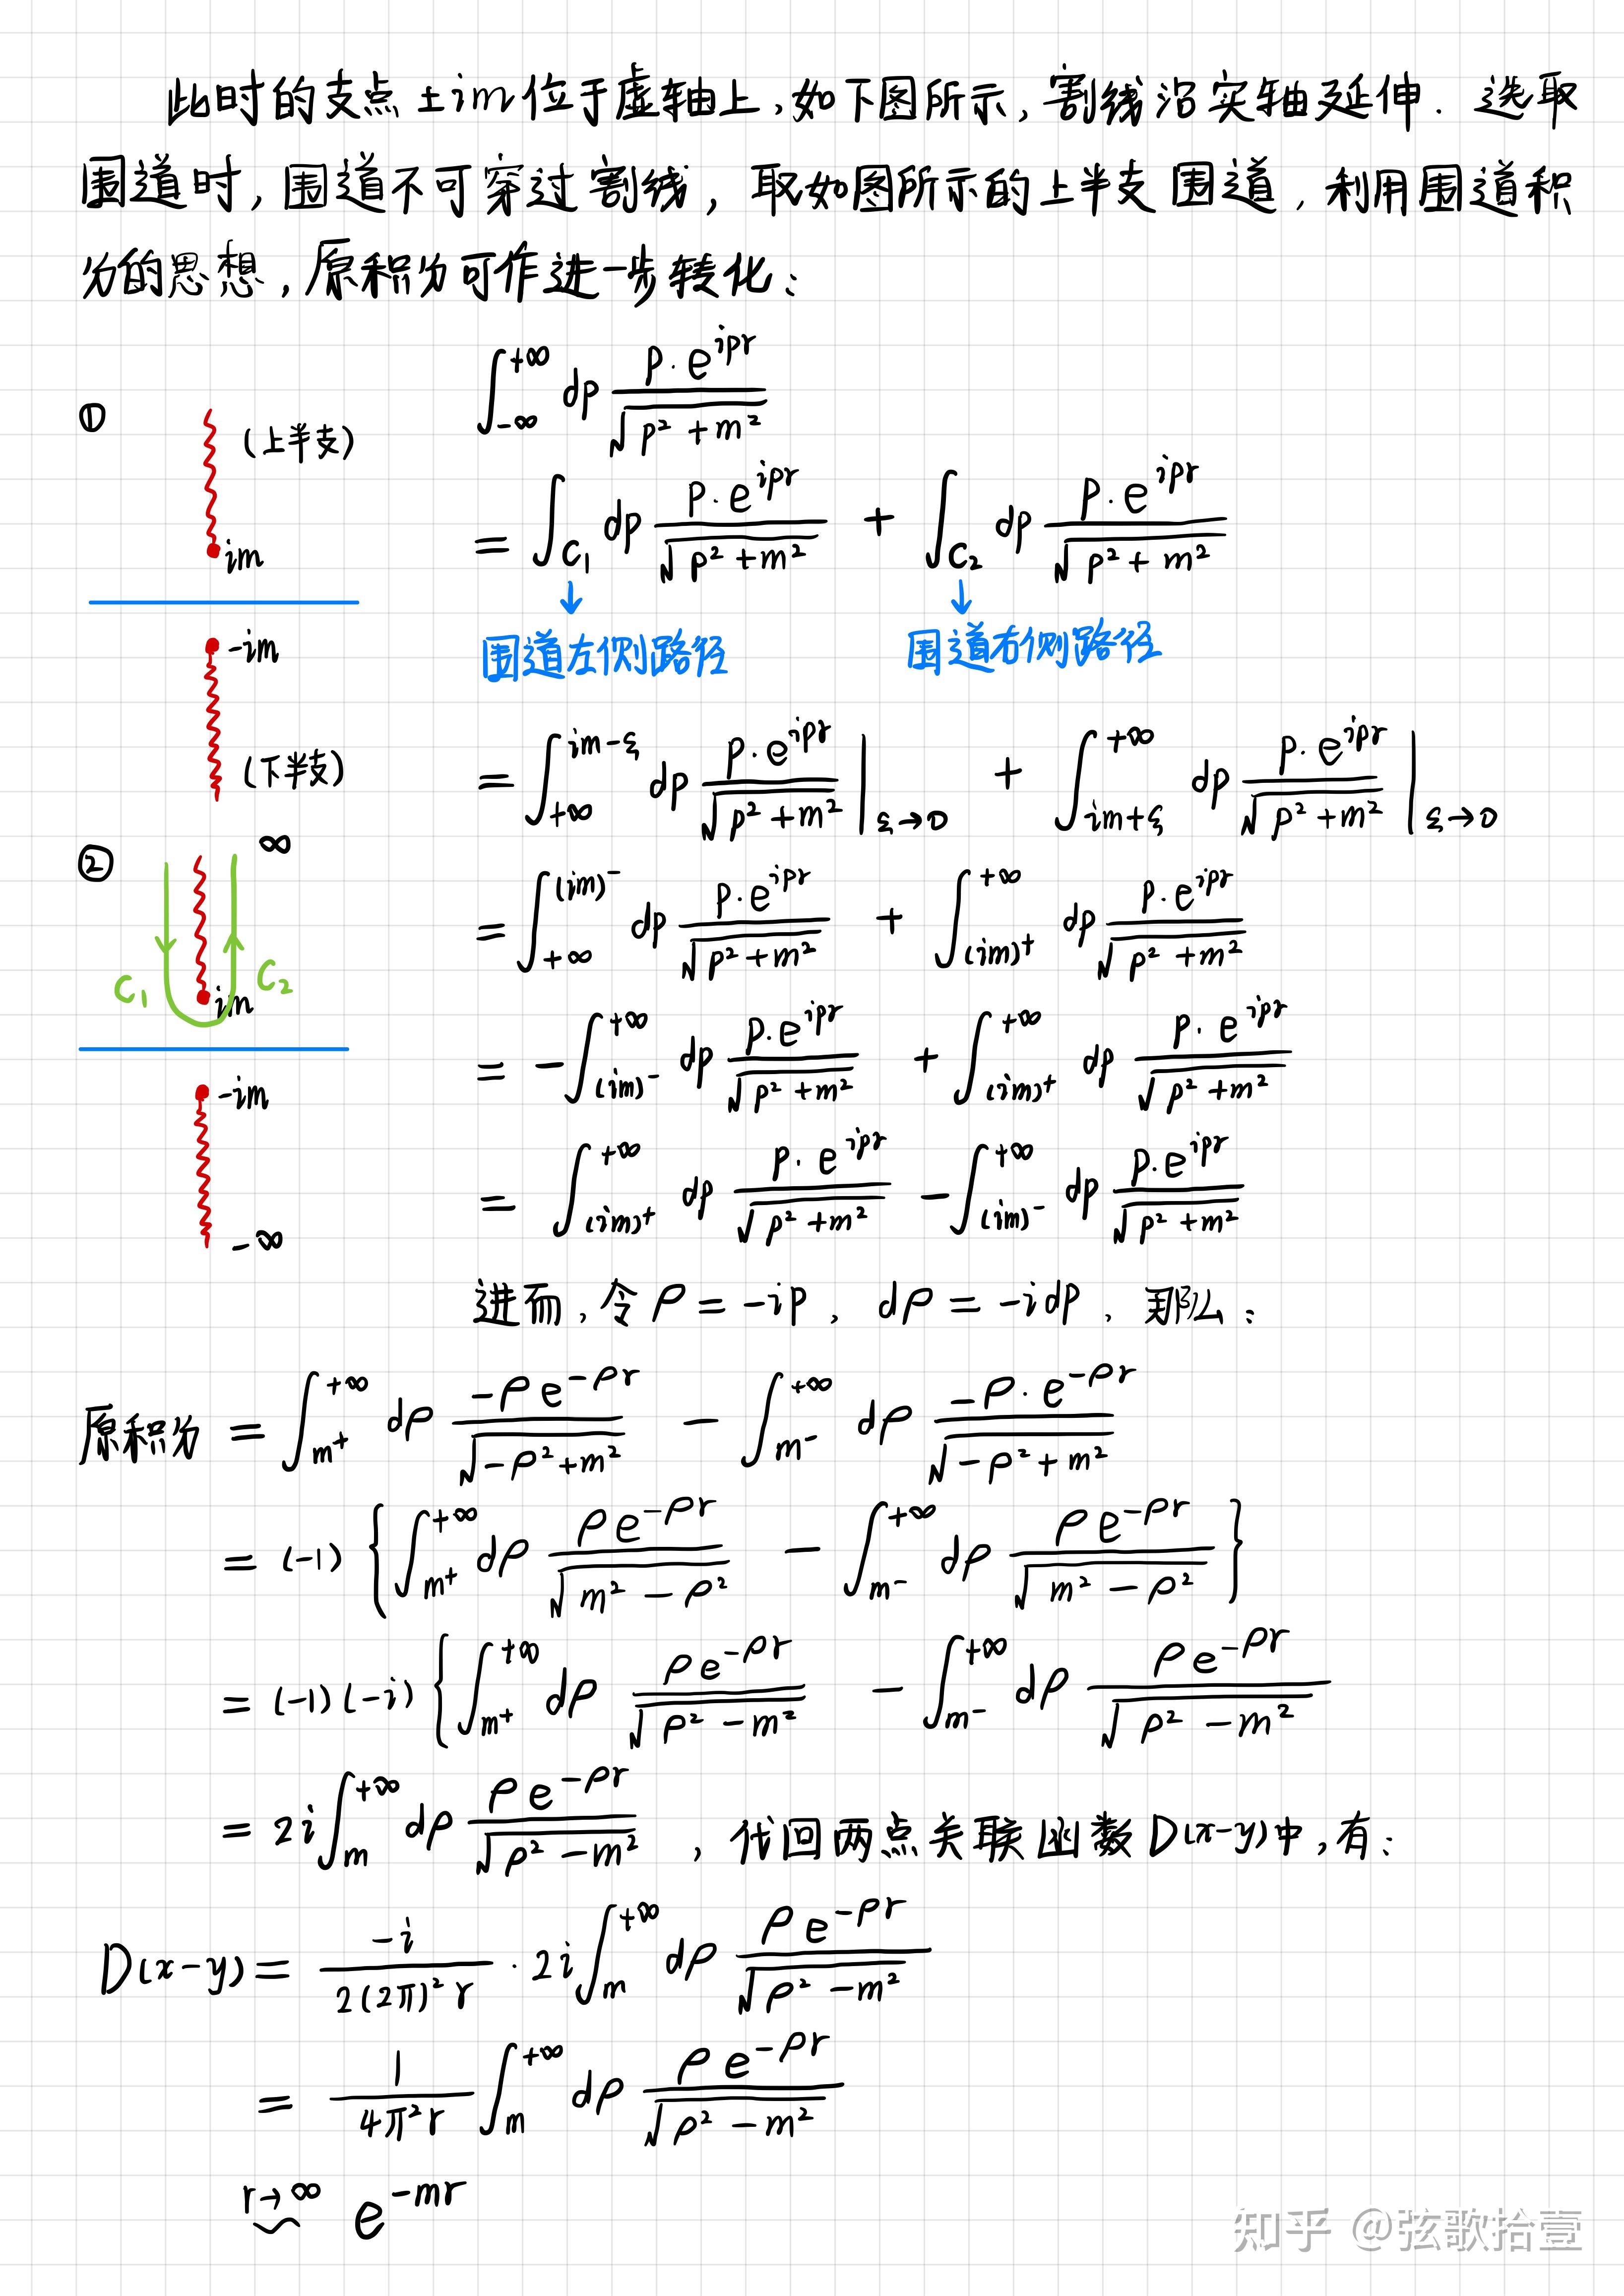 此时的支点 ±im 位于虚轴上,如下图所示,割线沿实轴延伸. 选取
围道时,围道不可穿过割线,取如图所示的上半支围道,利用围道积
分的思想,原积分可作进一步转化:
∫_{-∞}^{+∞} dp p·e^{ipr}/√(p²+m²)
① (上半支)
im
= ∫_{C₁} dp p·e^{ipr}/√(p²+m²) + ∫_{C₂} dp p·e^{ipr}/√(p²+m²)
↓ ↓
围道左侧路径 围道右侧路径
-im
(下半支)
= ∫_{+∞}^{im-ξ} dp p·e^{ipr}/√(p²+m²) |_{ξ→0} + ∫_{im+ξ}^{+∞} dp p·e^{ipr}/√(p²+m²) |_{ξ→0}
② ∞
C₁ C₂
im
= ∫_{+∞}^{(im)⁻} dp p·e^{ipr}/√(p²+m²) + ∫_{(im)⁺}^{+∞} dp p·e^{ipr}/√(p²+m²)
= -∫_{(im)⁻}^{+∞} dp p·e^{ipr}/√(p²+m²) + ∫_{(im)⁺}^{+∞} dp p·e^{ipr}/√(p²+m²)
-im
-∞
= ∫_{(im)⁺}^{+∞} dp p·e^{ipr}/√(p²+m²) - ∫_{(im)⁻}^{+∞} dp p·e^{ipr}/√(p²+m²)
进而,令 ρ = -ip, dρ = -idp, 那么:
原积分 = ∫_{m⁺}^{+∞} dρ -ρe^{-ρr}/√(-ρ²+m²) - ∫_{m⁻}^{+∞} dρ -ρ·e^{-ρr}/√(-ρ²+m²)
= (-1) {∫_{m⁺}^{+∞} dρ ρe^{-ρr}/√(m²-ρ²) - ∫_{m⁻}^{+∞} dρ ρe^{-ρr}/√(m²-ρ²)}
= (-1)(-i) {∫_{m⁺}^{+∞} dρ ρe^{-ρr}/√(ρ²-m²) - ∫_{m⁻}^{+∞} dρ ρe^{-ρr}/√(ρ²-m²)
= 2i∫_{m}^{+∞} dρ ρe^{-ρr}/√(ρ²-m²) , 代回两点关联函数 D(x-y)中,有:
D(x-y) = -i/(2(2π)²r) · 2i∫_{m}^{+∞} dρ ρe^{-ρr}/√(ρ²-m²)
= 1/(4π²r) ∫_{m}^{+∞} dρ ρe^{-ρr}/√(ρ²-m²)
r→∞ ~ e^{-mr}
知乎 @弦歌拾壹